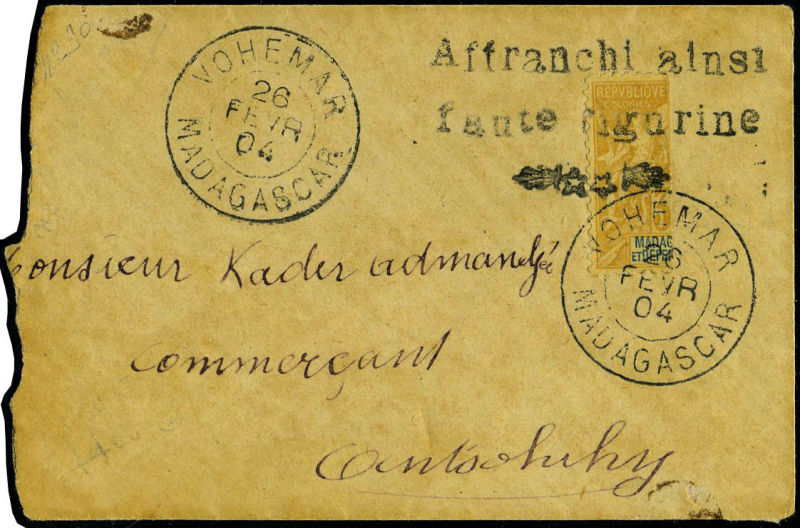 VOHEMAR
26
FEVR
04
MADAGASCAR
Affranchi ainsi
faute figurine
REPVBLIQVE
COLONIES
MADAG
ET DEPEN
VOHEMAR
26
FEVR
04
MADAGASCAR
Monsieur Kader admandjée
Commerçant
Antsohihy